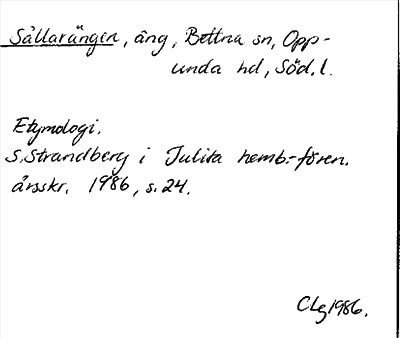 Sållarängen, äng, Bettna sn, Opp-
unda hd, Söd. l.
Etymologi.
S. Strandberg i Julita hemb.-fören.
årsskr. 1986, s. 24.
CLg 1986.